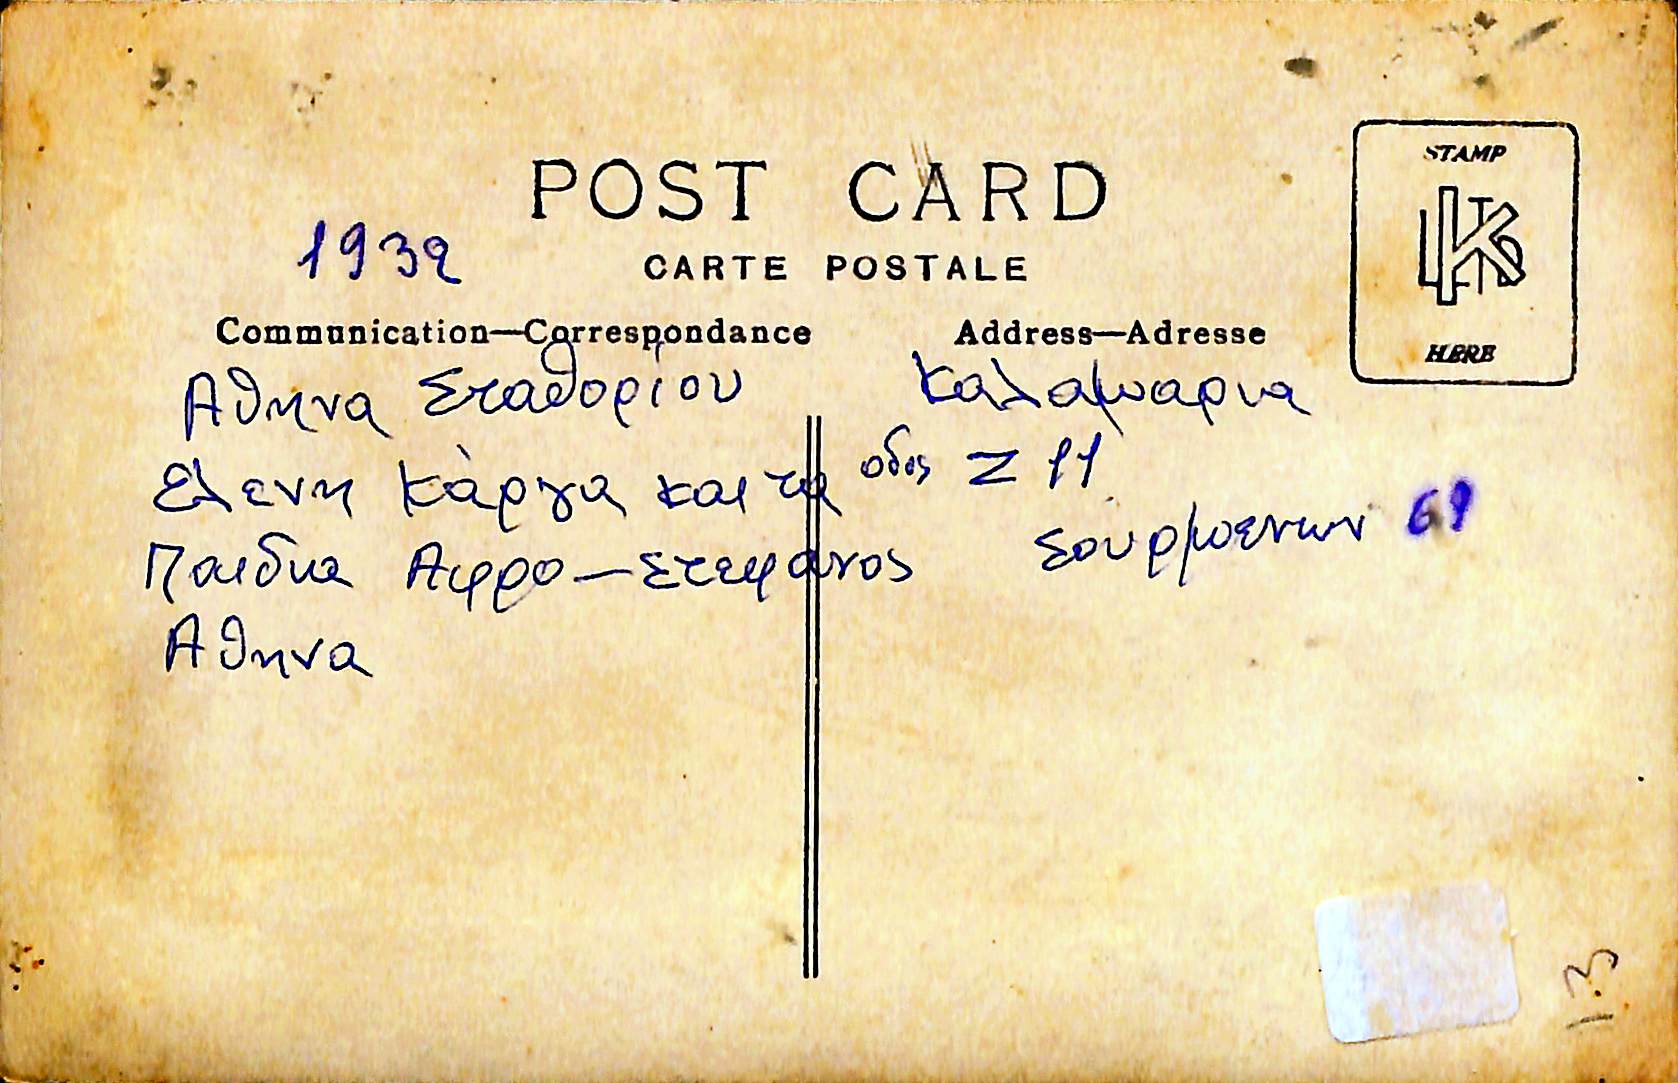 POST CARD
CARTE POSTALE
1932
Communication—Correspondance
Αθηνα Σταθορίου
Ελενη Κάργα και τα
Παιδια Αφρο – Στεφανος
Αθηνα
Address—Adresse
Καλαμαρια
οδος Ζ 11
Σουρμενων 61
STAMP
HERE
13